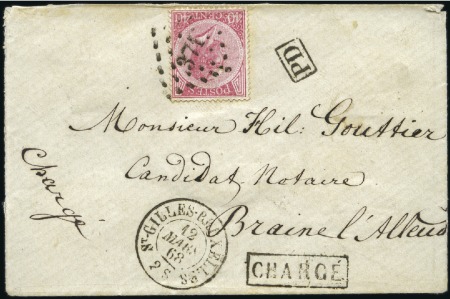 POSTES
PD
Monsieur Hil: Gouttier
Candidat Notaire
Braine l'Alleud
Chargé
ST GILLES-BRUXELLES
12
MARS
68
CHARGÉ